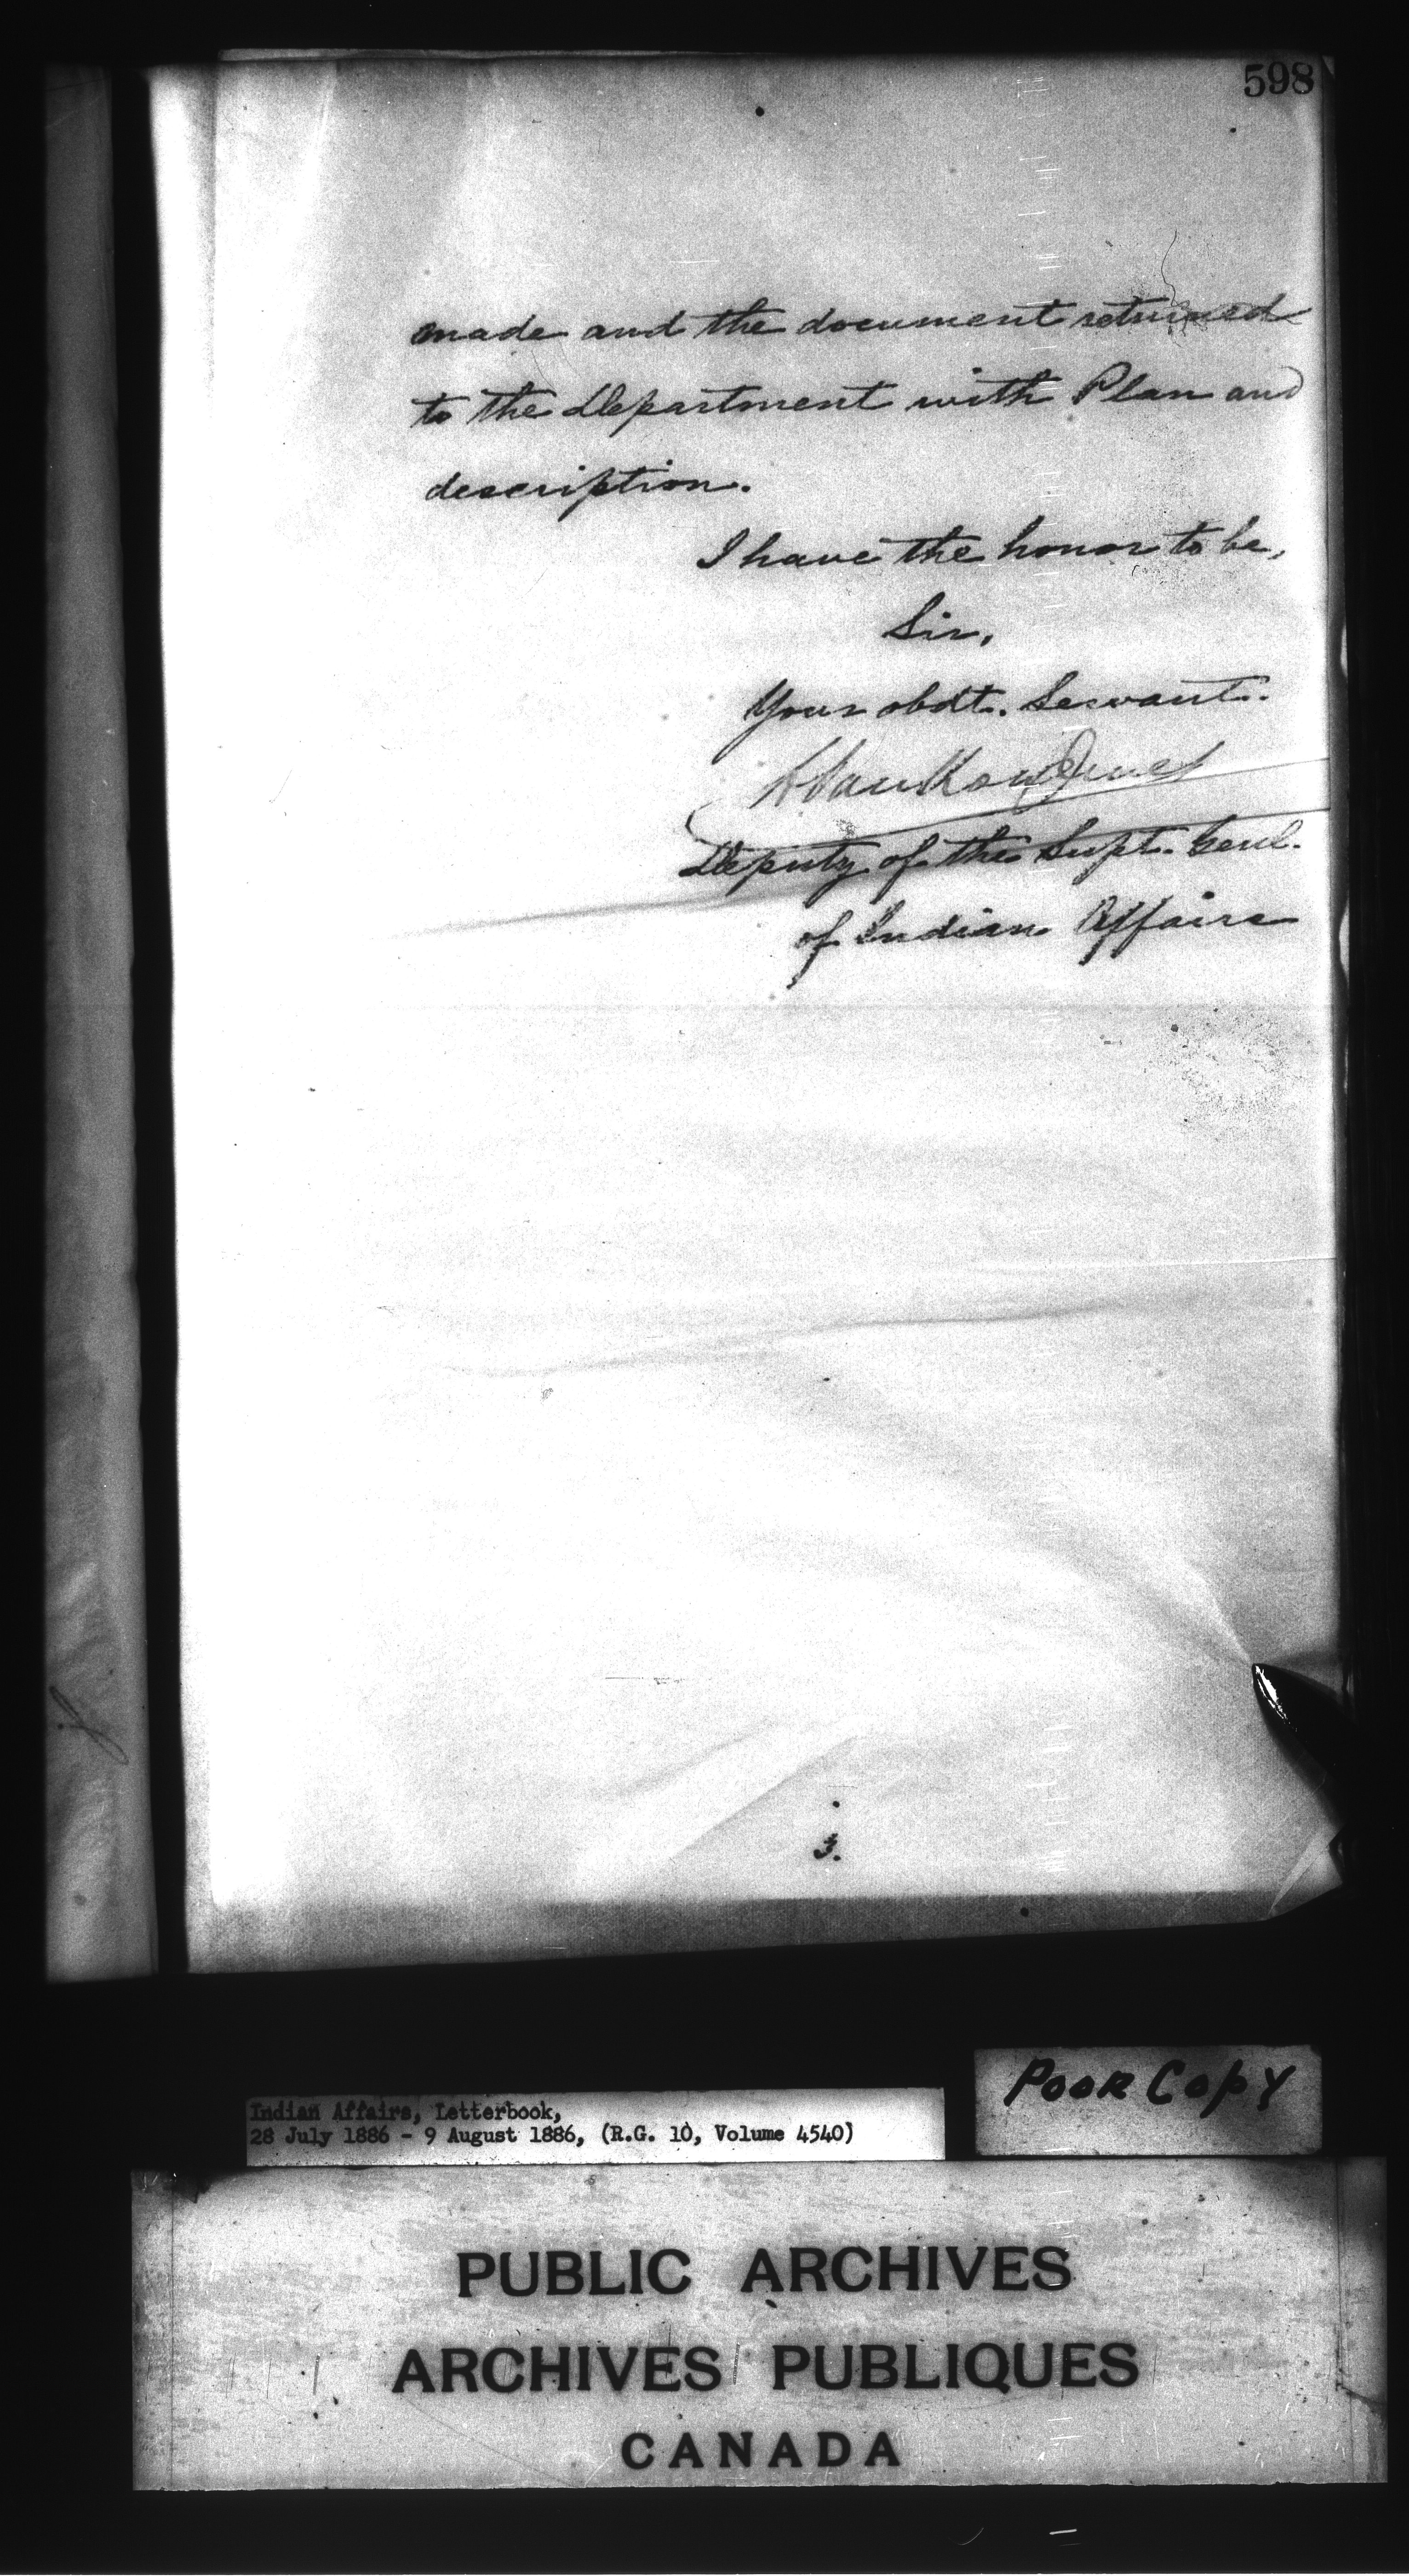 598
made and the document returned
to the Department with Plan and
description.
I have the honor to be,
Sir,
Your obdt. Servant.
L VanKoughnet
Deputy of the Supt. Genl.
of Indian Affairs
3.
POOR COPY
Indian Affairs, Letterbook,
28 July 1886 - 9 August 1886, (R.G. 10, Volume 4540)
PUBLIC ARCHIVES
ARCHIVES PUBLIQUES
CANADA